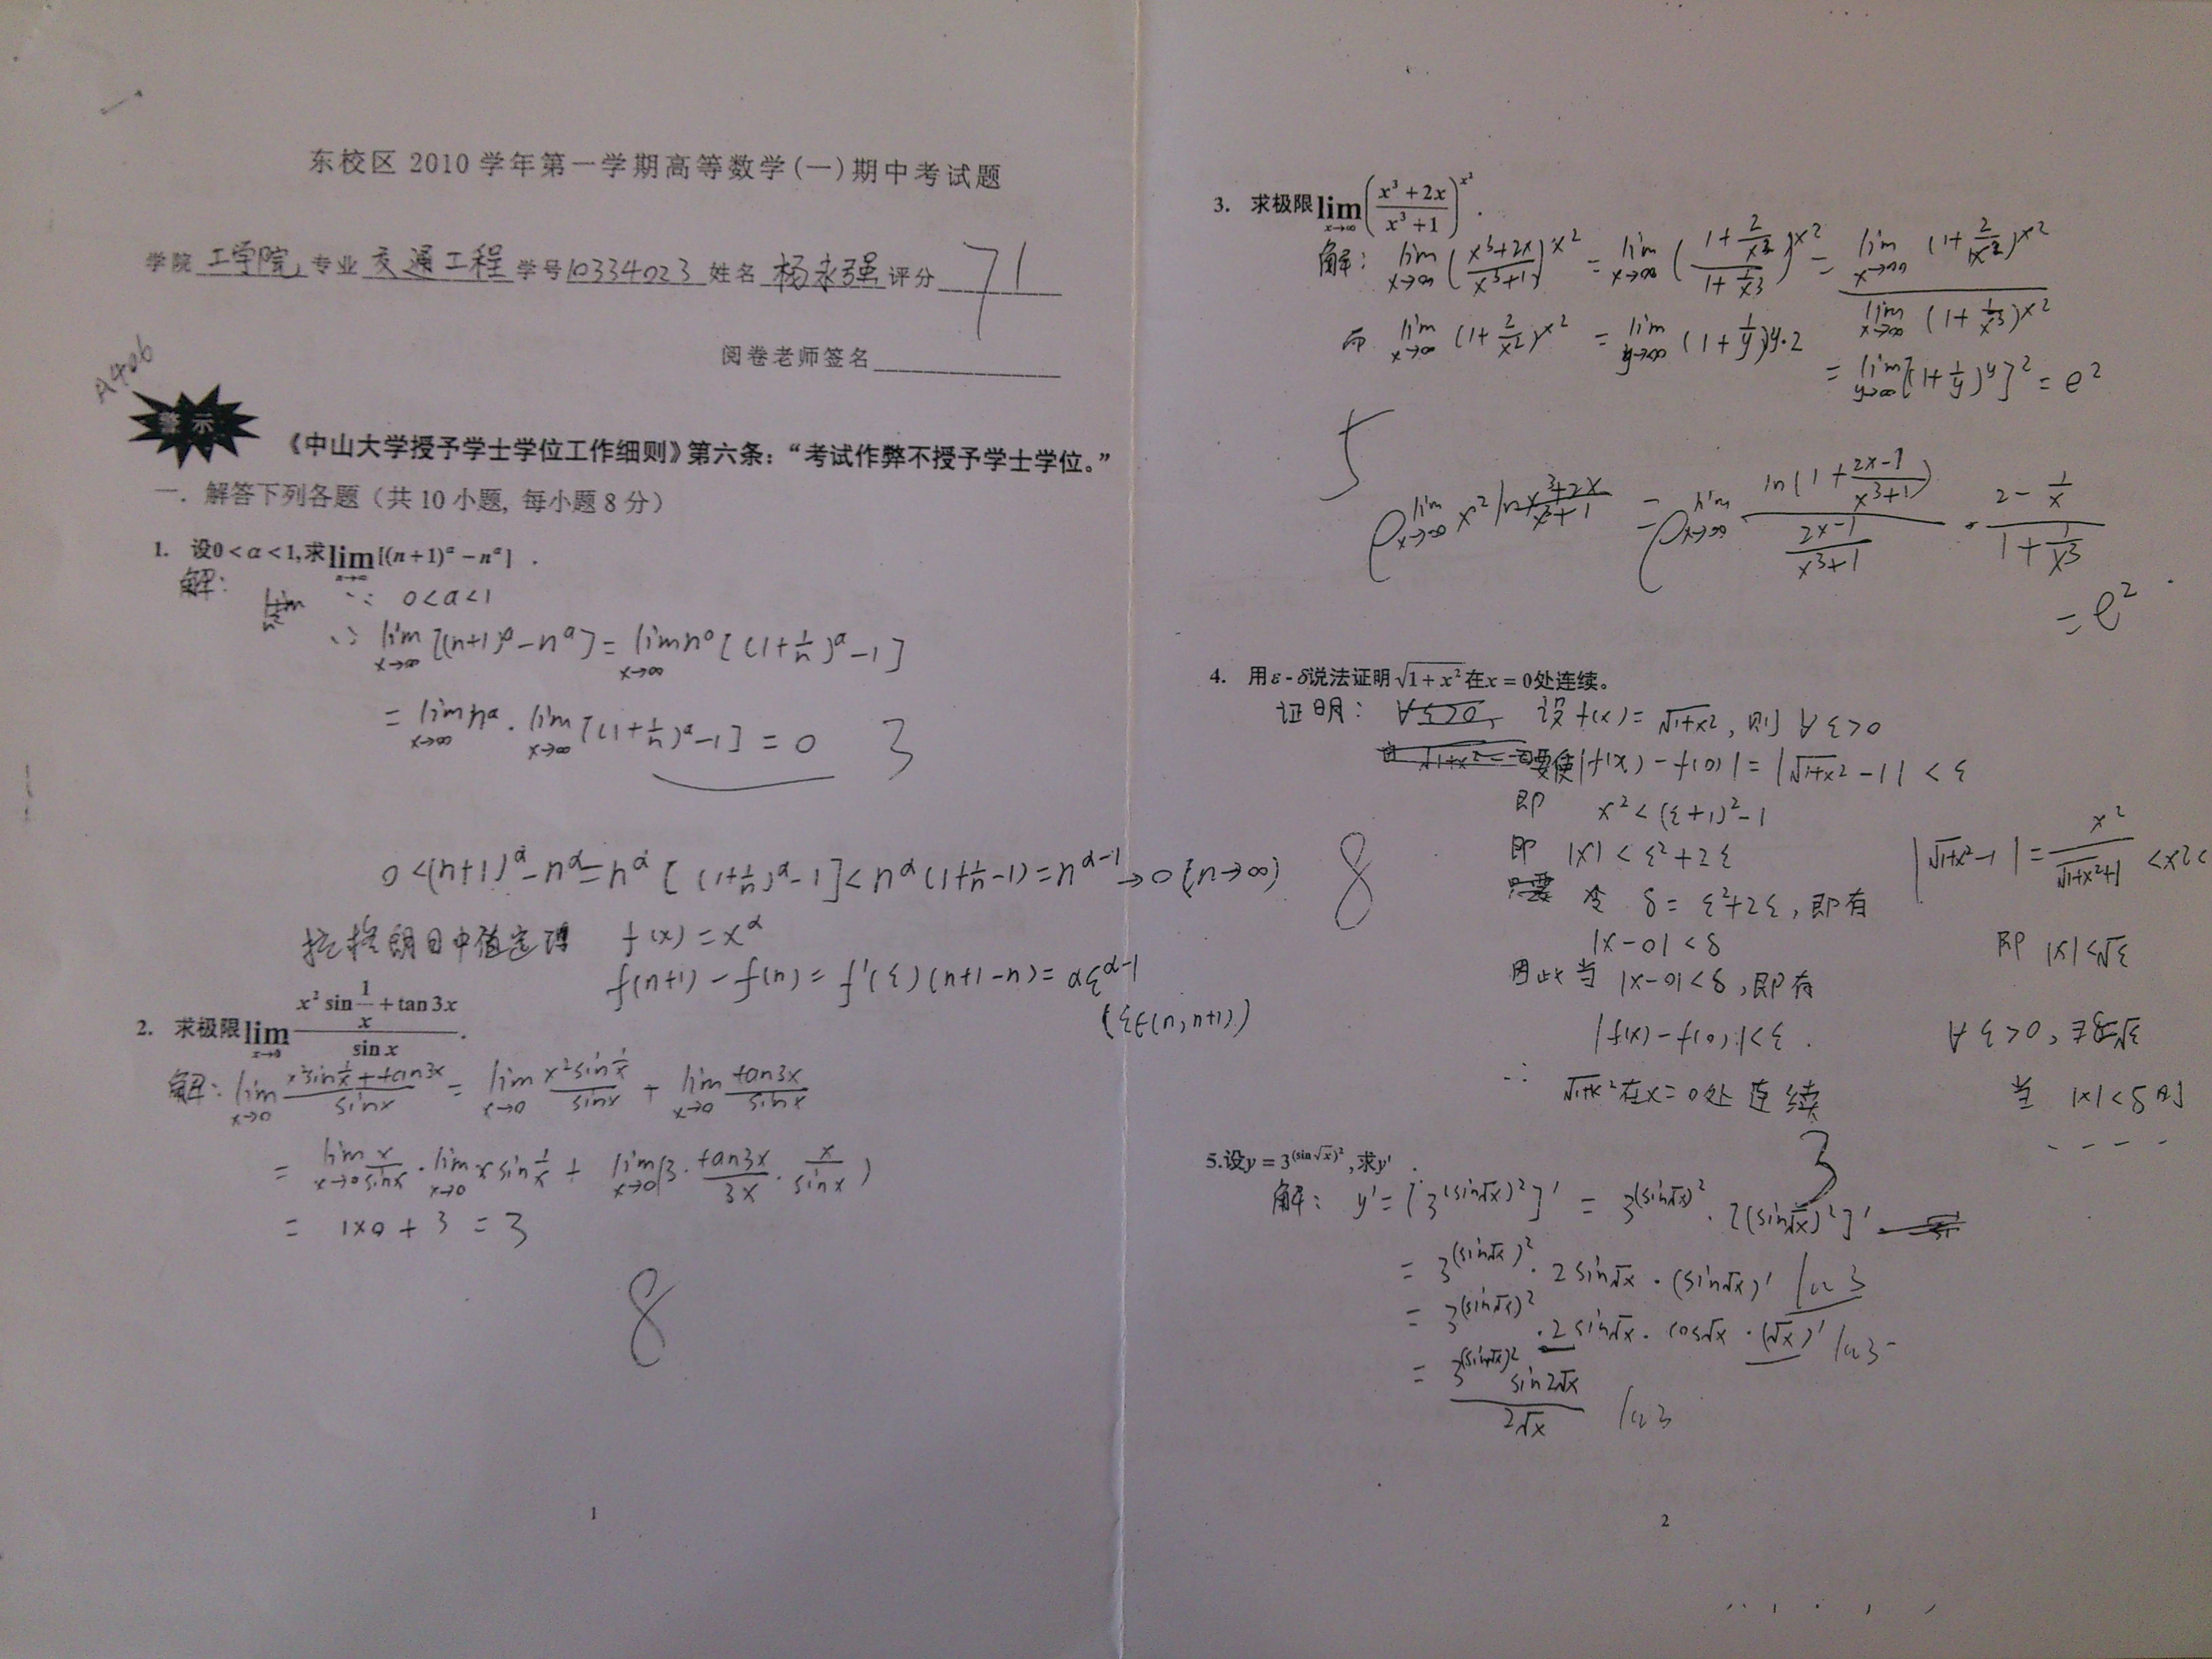 东校区 2010 学年第一学期高等数学(一)期中考试题
学院 工学院 专业 交通工程 学号 10334023 姓名 杨永强 评分 71
阅卷老师签名
A406
警示
《中山大学授予学士学位工作细则》第六条：“考试作弊不授予学士学位。”
一. 解答下列各题（共 10 小题, 每小题 8 分）
1. 设0<α<1,求lim[(n+1)^α−n^α] .
n→∞
解:
∵ 0<a<1
∴ lim_{x→∞} [(n+1)^a−n^a] = lim_{x→∞} n^a [(1+1/n)^a−1]
= lim_{x→∞} n^a · lim_{x→∞} [(1+1/n)^a−1] = 0 3
0<(n+1)^α−n^α=n^α[(1+1/n)^α−1]<n^α(1+1/n−1)=n^{α−1}→0(n→∞)
拉格朗日中值定理 f(x)=x^α
f(n+1)−f(n)=f'(ξ)(n+1−n)=αξ^{α−1}
(ξ∈(n,n+1))
2. 求极限 lim_{x→0} (x² sin 1/x + tan 3x)/(sin x) .
解: lim_{x→0} (x² sin 1/x + tan3x)/sinx = lim_{x→0} (x² sin 1/x)/sinx + lim_{x→0} tan3x/sinx
= lim_{x→0} x/sinx · lim_{x→0} x sin 1/x + lim_{x→0} (3 · tan3x/3x · x/sinx)
= 1×0+3 = 3
8
1
3. 求极限 lim_{x→∞} ((x³+2x)/(x³+1))^{x²} .
解: lim_{x→∞} ((x³+2x)/(x³+1))^{x²} = lim_{x→∞} ((1+2/x²)/(1+1/x³))^{x²} = lim_{x→∞} (1+2/x²)^{x²} / lim_{x→∞} (1+1/x³)^{x²}
而 lim_{x→∞} (1+2/x²)^{x²} = lim_{y→∞} (1+1/y)^{y·2}
= lim_{y→∞} [(1+1/y)^y]² = e²
5
e^{lim_{x→∞} x² ln (x³+2x)/(x³+1)} = e^{lim_{x→∞} ln(1+(2x−1)/(x³+1))/((2x−1)/(x³+1)) · (2−1/x)/(1+1/x³)}
= e²
4. 用ε-δ说法证明√(1+x²)在x=0处连续。
证明: 设f(x)=√(1+x²), 则∀ε>0
要使|f(x)−f(0)|=|√(1+x²)−1|<ε
即 x²<(ε+1)²−1
即 |x|<ε²+2ε
令 δ=ε²+2ε, 即有
|x−0|<δ
因此当 |x−0|<δ, 即有
|f(x)−f(0)|<ε.
∴ √(1+x²)在x=0处连续
8
|√(1+x²)−1|=x²/(√(1+x²)+1)<x²<
即 |x|<√ε
∀ε>0, 取δ=√ε
当 |x|<δ时
- - - -
5.设y=3^{(sin√x)²},求y' . 3
解: y'=[3^{(sin√x)²}]' = 3^{(sin√x)²}·[(sin√x)²]'
= 3^{(sin√x)²}·2sin√x·(sin√x)' ln3
= 3^{(sin√x)²}·2sin√x·cos√x·(√x)' ln3
= 3^{(sin√x)²} sin2√x / 2√x ln3
2